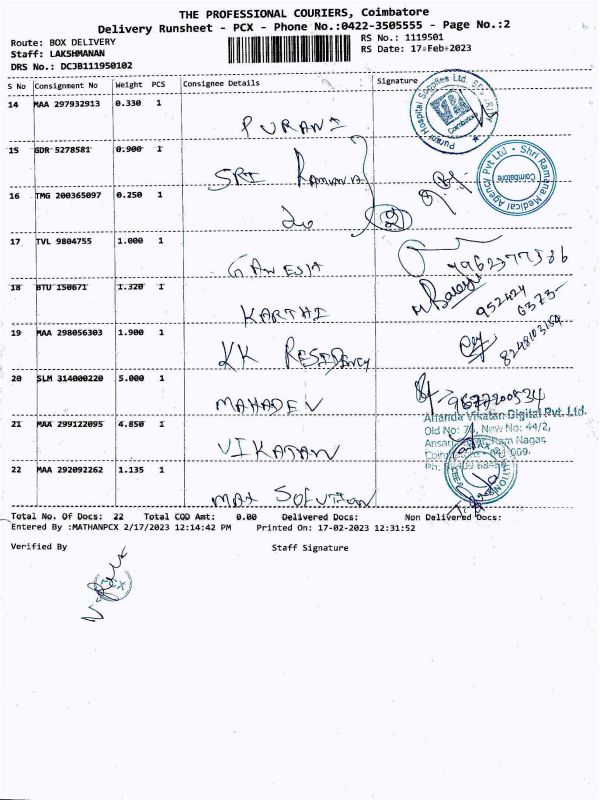 THE PROFESSIONAL COURIERS, Coimbatore
Delivery Runsheet - PCX - Phone No.:0422-3505555 - Page No.:2
Route: BOX DELIVERY RS No.: 1119501
Staff: LAKSHMANAN RS Date: 17-Feb-2023
DRS No.: DCJB111950102
S No Consignment No Weight PCS Consignee Details Signature
14 MAA 297932913 0.330 1 PURANI
Purani Hospital Supplies Coimbatore
15 GDR 5278581 0.900 1 SRI Ramana
Shri Ramana Medical Agency Pvt Ltd Coimbatore
16 TMG 200365097 0.250 1
17 TVL 9804755 1.000 1 GANESH
18 BTU 150671 1.320 1 KARTHI
19 MAA 298056303 1.900 1 KK RESIDENCY
8248103184
20 SLM 314000220 5.000 1 MAHADEV
9677200534
21 MAA 299122095 4.850 1 VIKATAN
Ananda Vikatan Digital Pvt. Ltd.
Old No: New No: 44/2,
Ram Nagar,
22 MAA 292092262 1.135 1 MAX SOLUTION
Total No. Of Docs: 22 Total COD Amt: 0.00 Delivered Docs: Non Delivered Docs:
Entered By :MATHANPCX 2/17/2023 12:14:42 PM Printed On: 17-02-2023 12:31:52
Verified By Staff Signature